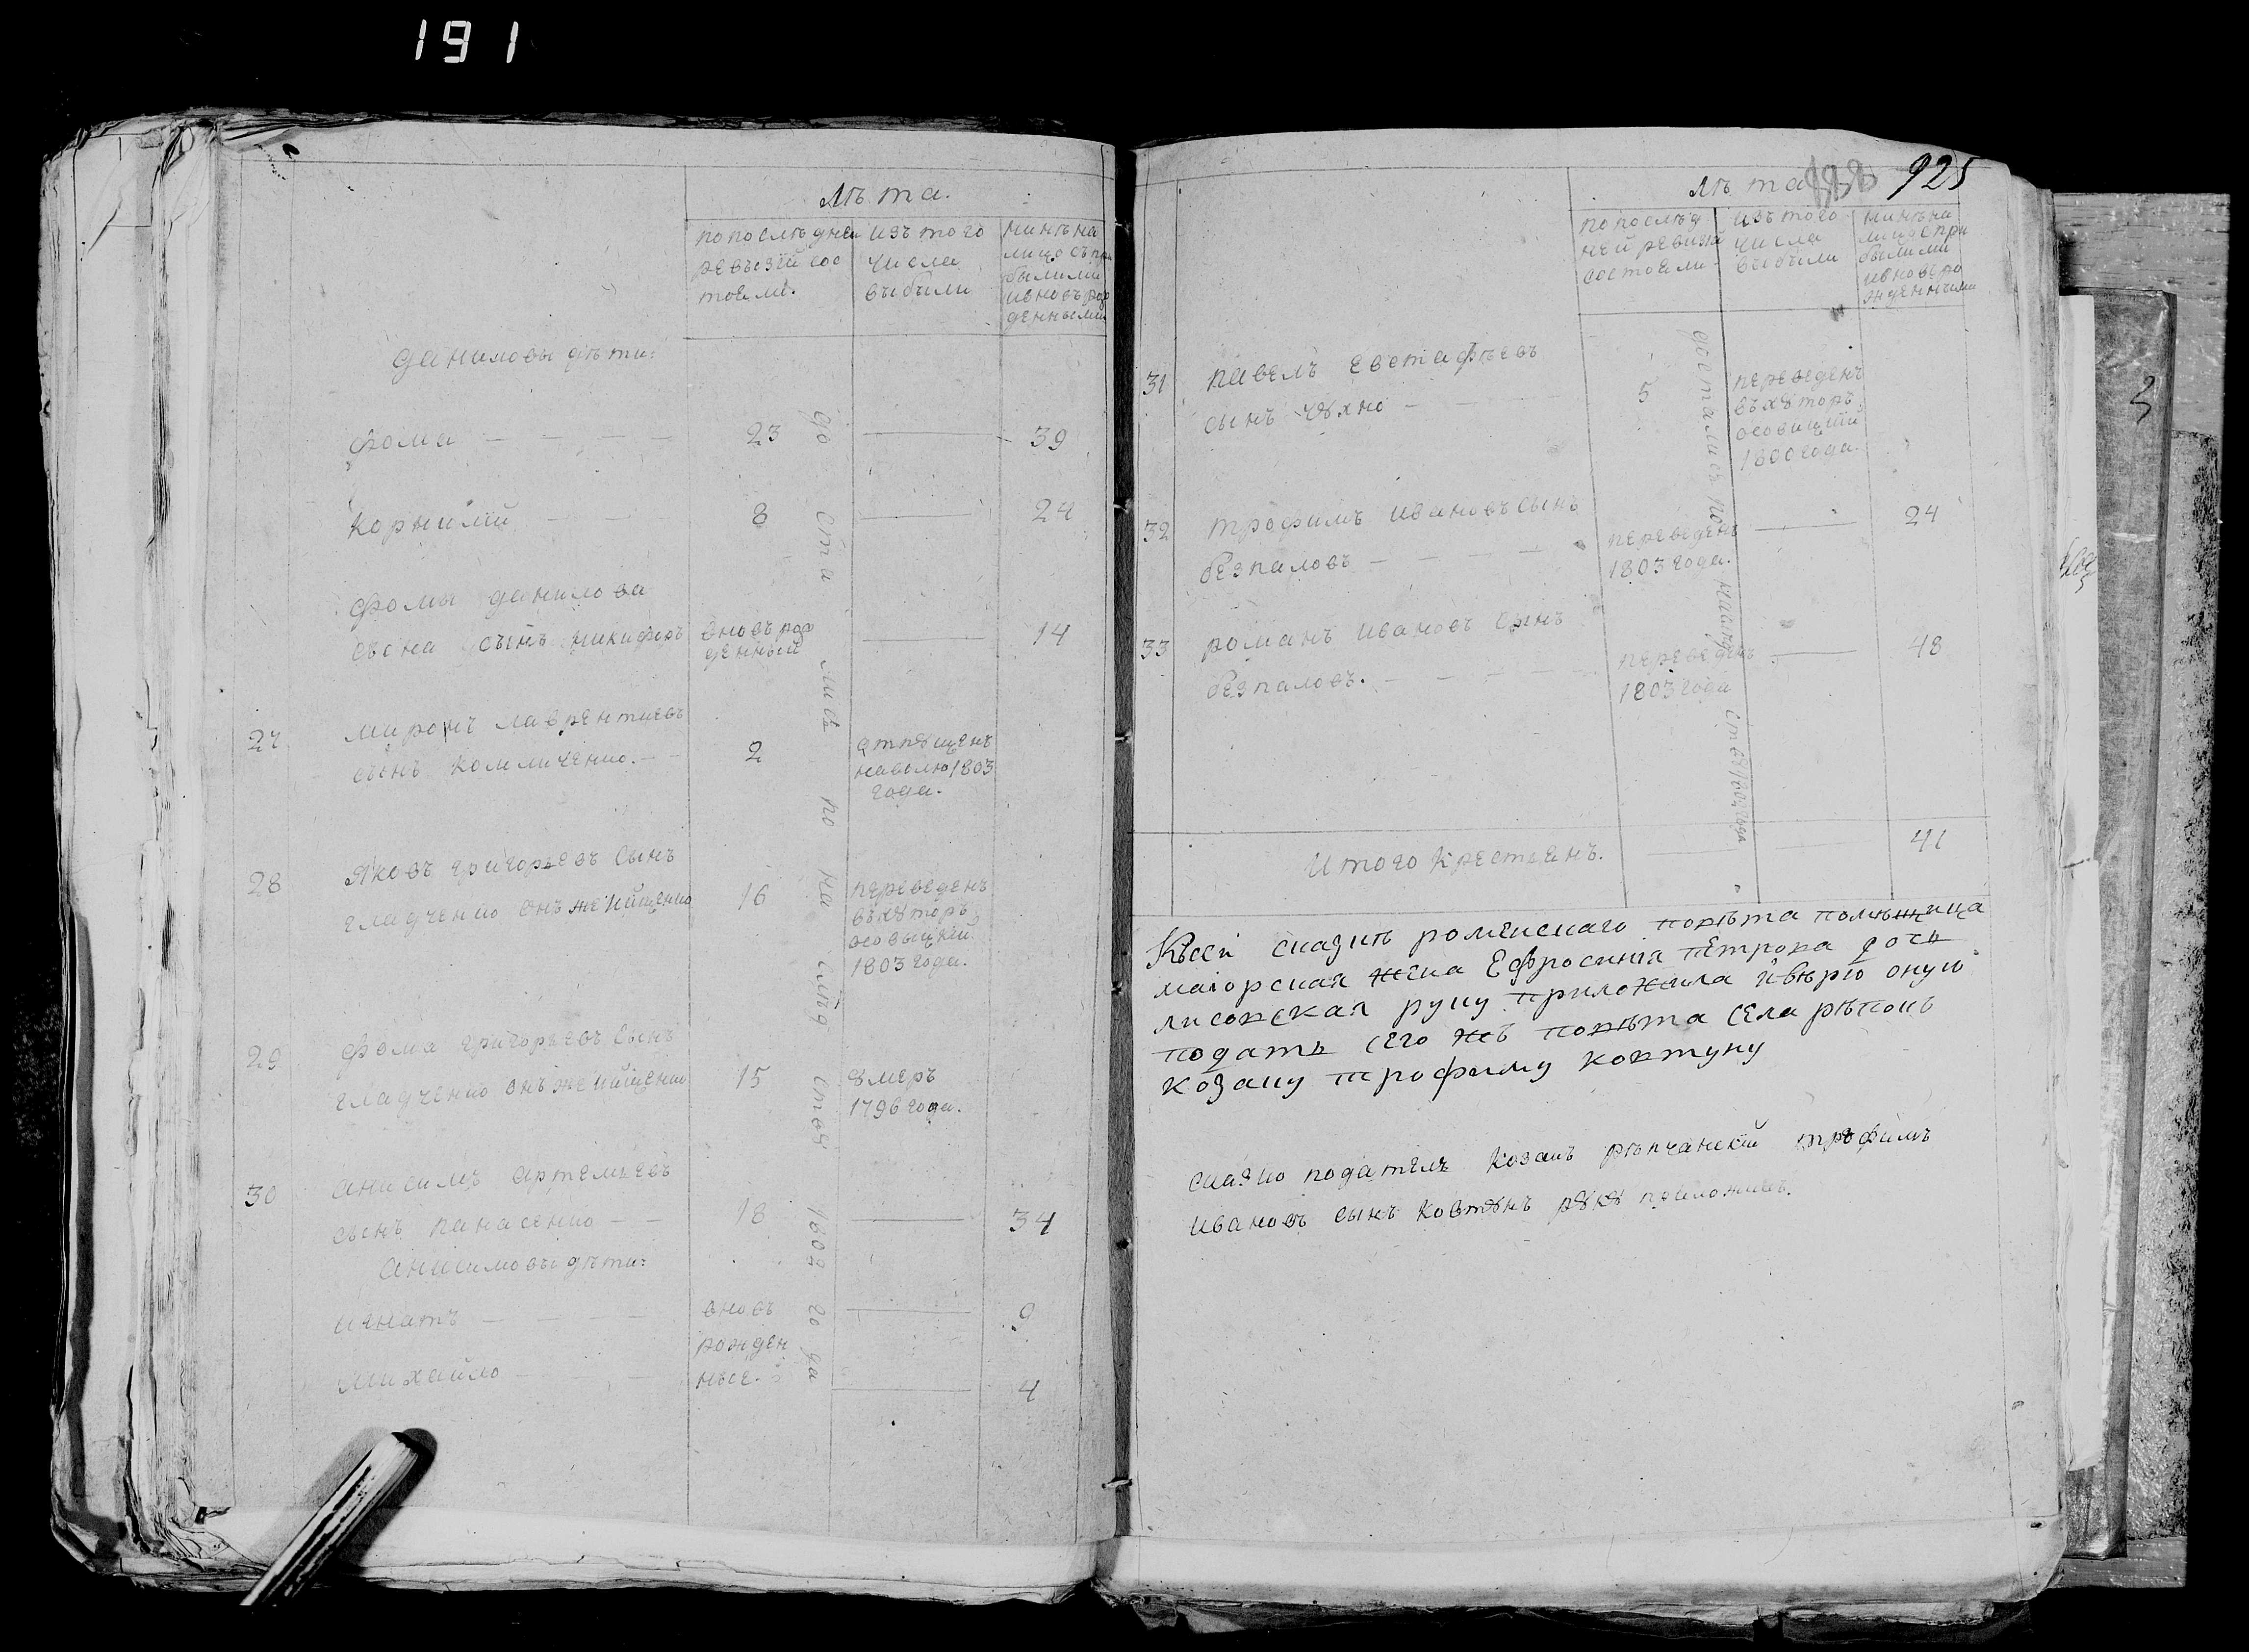 191
лѣта.
попослѣдней
ревизїи сос
тояли.
изъ того
числа
выбыли
нинѣ на
лицо съ при
былыми
ивновь рож
денными
Даниловы дѣти:
Фома 23 39
Корнилїй 8 24
Фомы Данилова
сына сынъ Никифоръ
вновь рож
денный
14
27 Миронъ Лаврентиевъ
сынъ Комличенко. 2
отпꙋщенъ
наволю 1803
года.
28 Яковъ Григорьевъ сынъ
Гладченко онъ же Ищенко 16
переведенъ
въ хꙋторъ
1803 года.
29 Фома Григорьевъ сынъ
Гладченко онъ же Ищенко 15
ꙋмеръ
1796 года.
30 Анисимъ Артемьевъ
сынъ Панасенко 18 34
Анисимовы дѣти:
Игнатъ
вновь
рожден
ные.
9
Михайло 4
лѣта
925
попослѣд
ней ревизїи
состояли
изъ того
числа
выбыли
нинѣ на
лицо спри
былыми
ивновь ро
жденными
31 Павелъ Евстафѣевъ
сынъ Чꙋхно 5
переведенъ
въ хꙋторъ
1800 года.
32 Трофимъ Ивановъ сынъ
Безпаловъ
переведенъ
1803 года.
24
33 Романъ Ивановъ сынъ
Безпаловъ.
переведенъ
1803 года
48
Итого крестьянъ. 41
Ксей сказкѣ роменскаго повѣта помѣщица
маіорская жена Ефросинія Петрова дочь
Лисовская руку приложила ивѣрю оную
подать сего жъ повѣта села Рѣпокъ
козаку Трофиму Ковтуну
скаскꙋ податель козакъ рѣпчанскїй Трофимъ
Ивановъ сынъ Ковтꙋнъ рꙋкꙋ приложилъ.